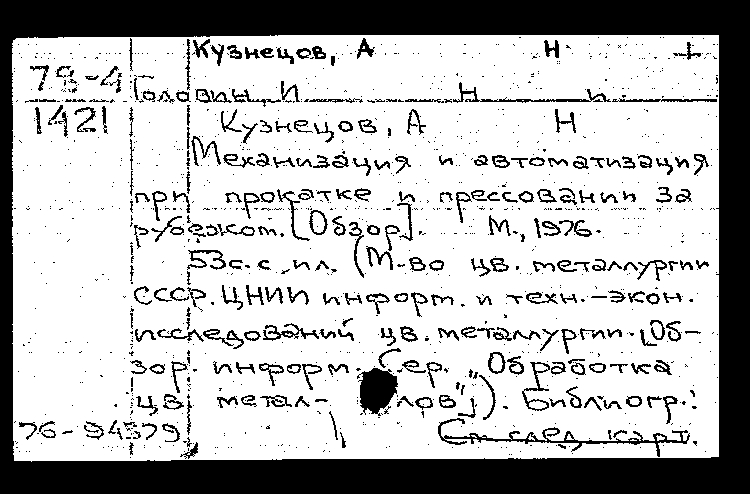 Кузнецов, А Н +
78-4 Головин, И Н и
1421 Кузнецов, А Н
Механизация и автоматизация
при прокатке и прессовании за
рубежом. [Обзор]. М., 1976.
53с. с ил. (М-во цв. металлургии
СССР. ЦНИИ информ. и техн.-экон.
исследований цв. металлургии. [Об-
зор. информ. Сер. "Обработка
цв. метал- лов"]). Библиогр.:
76-94379 См след. карт.